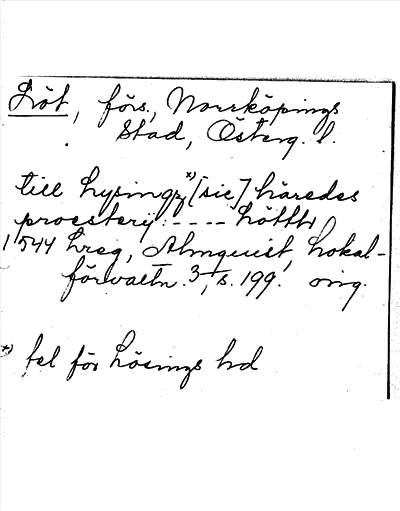 Löt, förs., Norrköpings
stad, Österg. l.
till Lysingz*) [sic] häredes
proesterij: ---- Lötth
1544 Lreg, Almquist, Lokal-
förvaltn. 3, s. 199. orig.
*) fel för Lösings hd